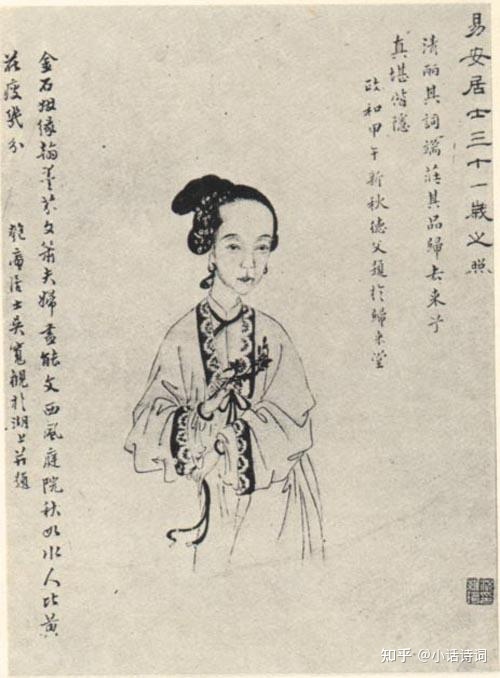 易安居士三十一歲之照
清麗其詞端莊其品歸去來兮
真堪偕隱
政和甲午新秋德父題於歸來堂
金石姻緣翰墨芬文簫夫婦盡能文西風庭院秋如水人比黃
花瘦幾分
匏庵居士吳寬觀於湖上并題
知乎 @小话诗词